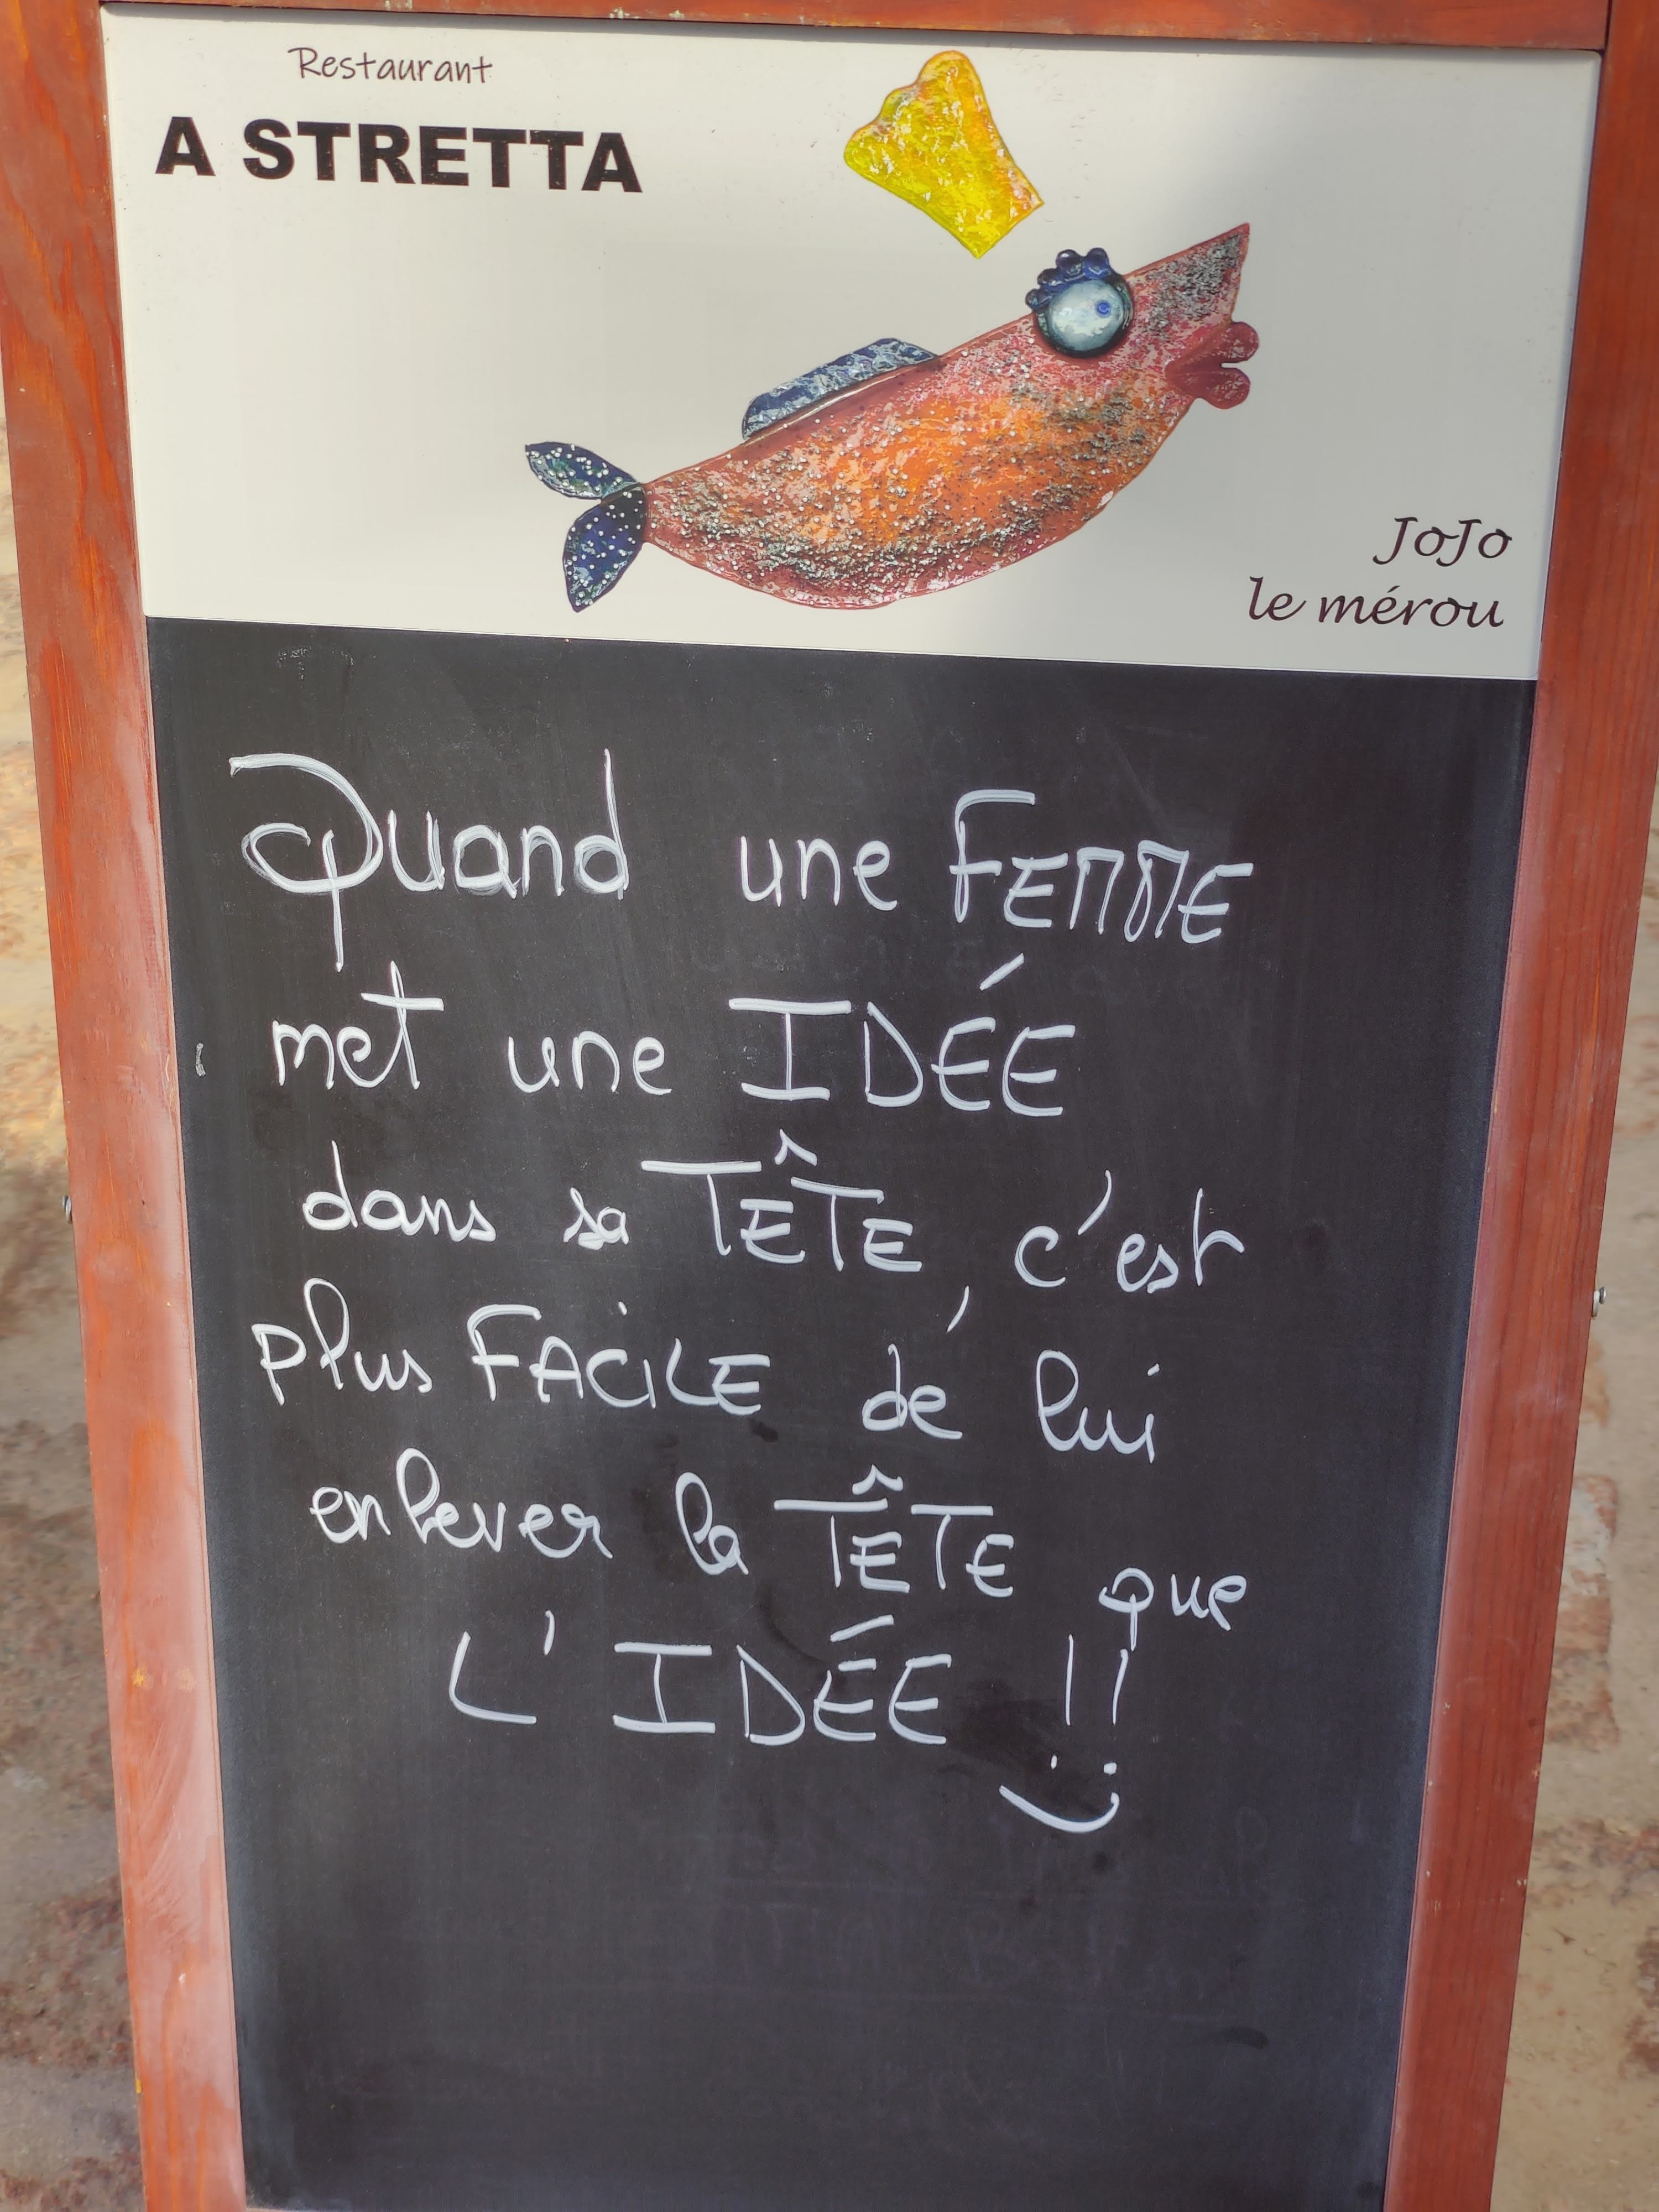 Restaurant
A STRETTA
JoJo
le mérou
Quand une FEMME
met une IDÉE
dans sa TÊTE, c'est
plus FACILE dé lui
enlever la TÊTE que
L'IDÉE !!